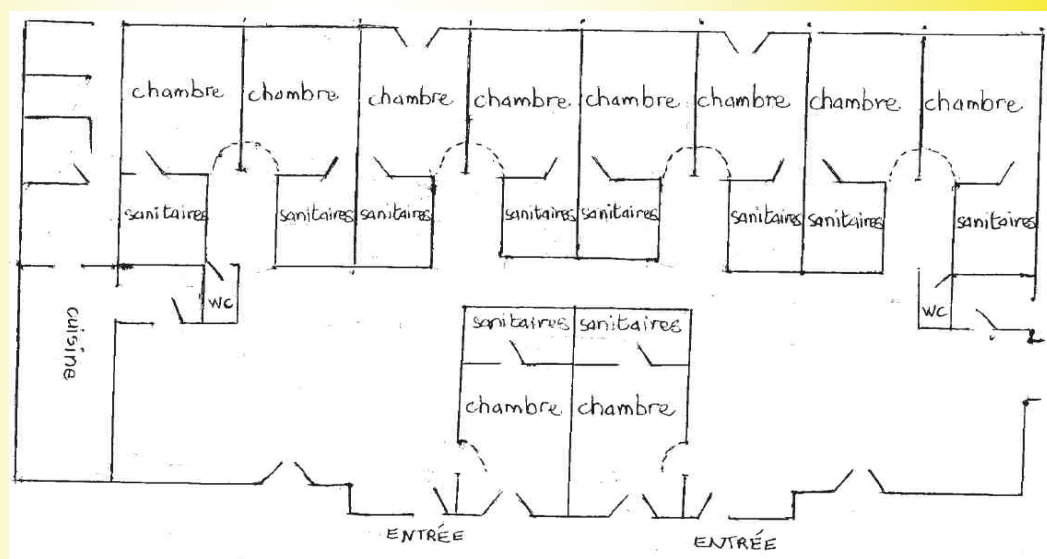 chambre chambre chambre chambre chambre chambre chambre chambre
sanitaires sanitaires sanitaires sanitaires sanitaires sanitaires sanitaires sanitaires
WC WC
cuisine
sanitaires sanitaires
chambre chambre
ENTRÉE ENTRÉE